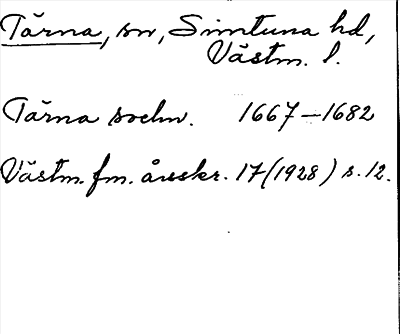 Tärna, sn, Simtuna hd,
Västm. l.
Tärna sockn. 1667–1682
Västm. fm. årsskr. 17 (1928) s. 12.